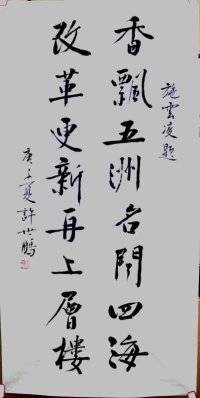 施雲凌題
香飄五洲名聞四海
改革更新再上層樓
庚子夏許世鵬